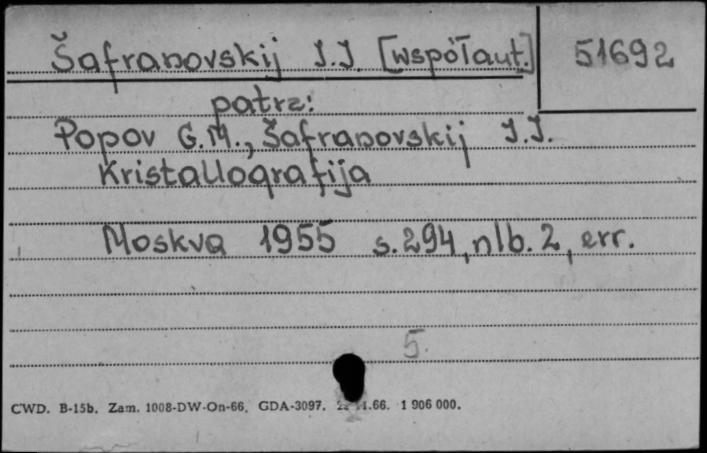 Šafranovskij I.I. [współaut.] 51692
patrz:
Popov G.M., Šafranovskij I.I.
Kristallografija
Moskva 1955 s.294, nlb.2, err.
5.
CWD. B-15b. Zam. 1008-DW-On-66. GDA-3097. .66. 1 906 000.